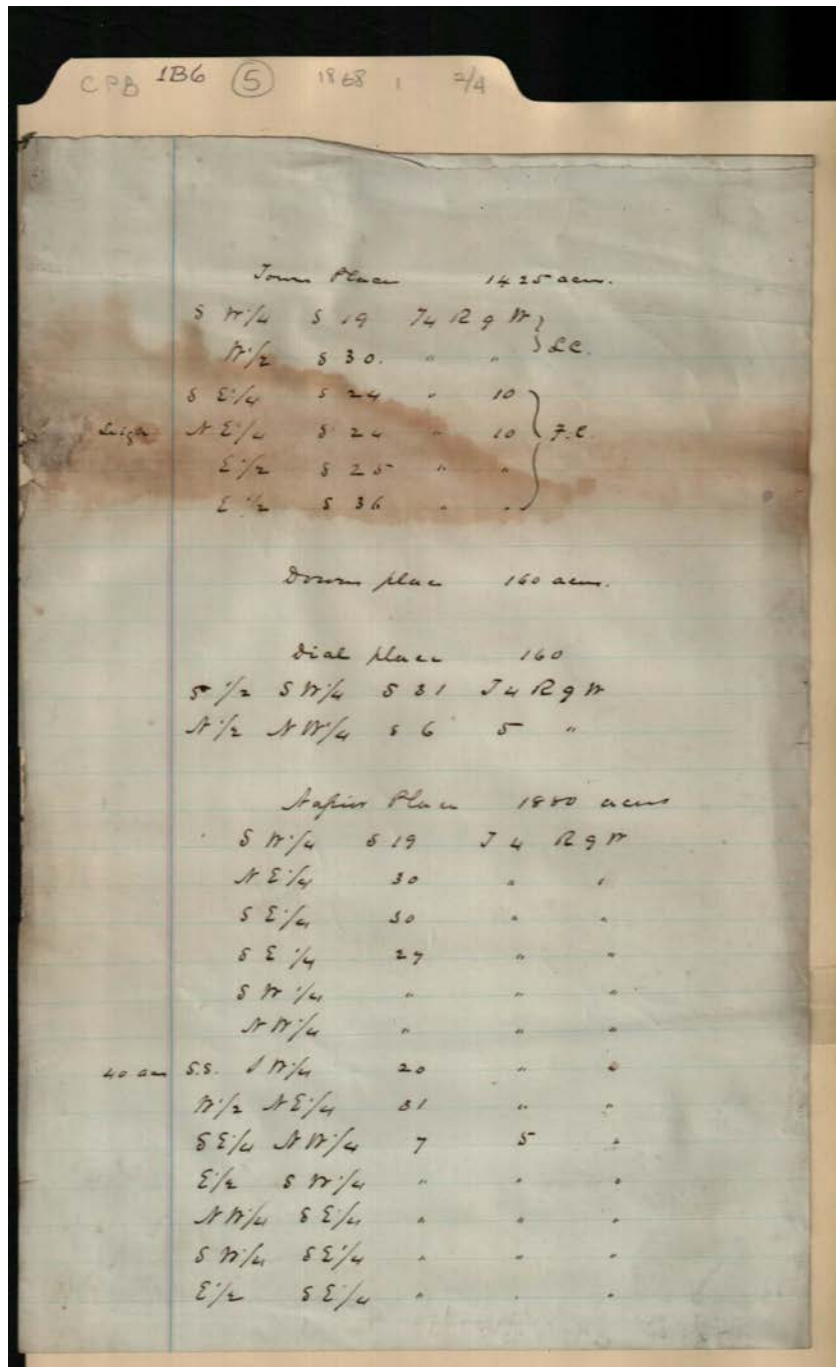 CPB 1B6 5 1868 1 2/4
Place 1425 acres.
S W 1/4 S 19 T 4 R 9 W
W 1/2 S 30. " " S.C.
S E 1/4 S 24 " 10
Leigh N E 1/4 S 24 " 10 F.C.
E 1/2 S 25 " "
E 1/2 S 36 " "
Down place 160 acres.
Dial place 160
S 1/2 S W 1/4 S 31 T 4 R 9 W
N 1/2 N W 1/4 S 6 5 "
Napier Place 1880 acres
S W 1/4 S 19 T 4 R 9 W
N E 1/4 30 " "
S E 1/4 30 " "
S E 1/4 27 " "
S W 1/4 " " "
N W 1/4 " " "
40 acs S.S. S W 1/4 20 " "
W 1/2 N E 1/4 31 " "
S E 1/4 N W 1/4 7 5 "
E 1/2 S W 1/4 " " "
N W 1/4 S E 1/4 " " "
S W 1/4 S E 1/4 " " "
E 1/2 S E 1/4 " " "